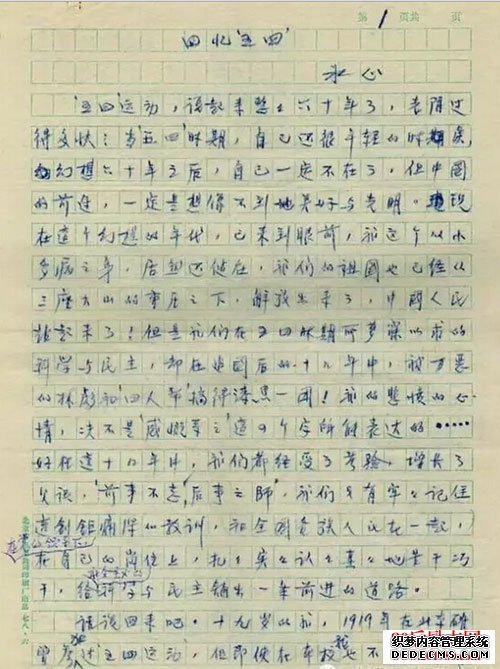 第1页共 页
回忆'五四'
冰心
'五四'运动，该起来整々六十年了，光阴过
得多快：当'五四'时期，自己还很年轻的时候矣，
幻想六十年之后，自己一定不在了，但中国
的前途，一定是想像不到地美好与光明。现
在这个幻想的年代，已来到眼前，我这个从小
多病之身，居然还健在，我们的祖国也已经从
三座大山的重压之下，解放出来了，中国人民
站起来了！但是我们在五四时期所梦寐以求的
科学与民主，却在建国后的十几年中，被万恶
的林彪和'四人帮'搞得漆黑一团！我的悲愤的心
情，决不是'感慨系之'这四个字所能表达的……
好在这十几年中，我们都经受了考验，增长了
见识，'前事不忘，后事之师'，我们只有牢々记住
这创钜痛深的教训，和全国各族人民在一起，
在自己的岗位上，扎々实々认々真々地苦干巧
干，给科学与民主铺出一条前进的道路。
该说回来吧。十九岁的我，1919年在北京确
曾参过五四运动，但即使在本校也不
织梦内容管理系统
DEDECMS.COM